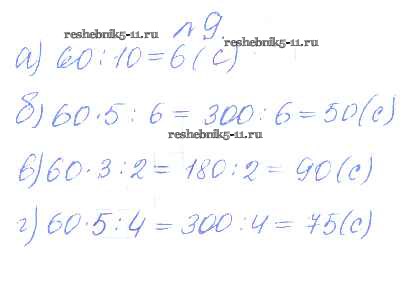 №9.
reshebnik5-11.ru
reshebnik5-11.ru
а) 60:10=6(с)
б) 60·5:6=300:6=50(с)
reshebnik5-11.ru
в) 60·3:2=180:2=90(с)
г) 60·5:4=300:4=75(с)